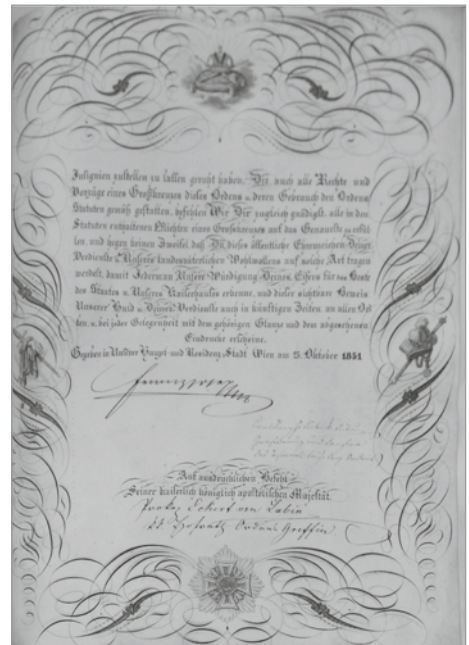 Insignien zustellen zu lassen geruht haben, Dir auch alle Rechte und
Vorzüge eines Großkreuzes dieses Ordens u. deren Gebrauch den Ordens
Statuten gemäß gestatten, befehlen Wir Dir zugleich gnädigst, alle in den
Statuten enthaltenen Pflichten eines Großkreuzes auf das Genaueste zu erfül-
len, und hegen keinen Zweifel daß Du dieses öffentliche Ehrenzeichen Deiner
Verdienste u. Unseres landesväterlichen Wohlwollens auf solche Art tragen
werdest, damit Jedermann Unsere Würdigung Deines Eifers für das Beste
des Staates u. Unseres Kaiserhauses erkenne, und dieser sichtbare Beweis
Unserer Huld u. Deiner Verdienste auch in künftigen Zeiten, an allen Or
ten, u. bei jeder Gelegenheit mit dem gehörigen Glanze und dem abgesehenen
Eindrucke erscheine.
Gegeben in Unserer Haupt und Residenz Stadt Wien am 5. Oktober 1851
Auf ausdrücklichen Befehl
Seiner kaiserlich königlich apostolischen Majestät.